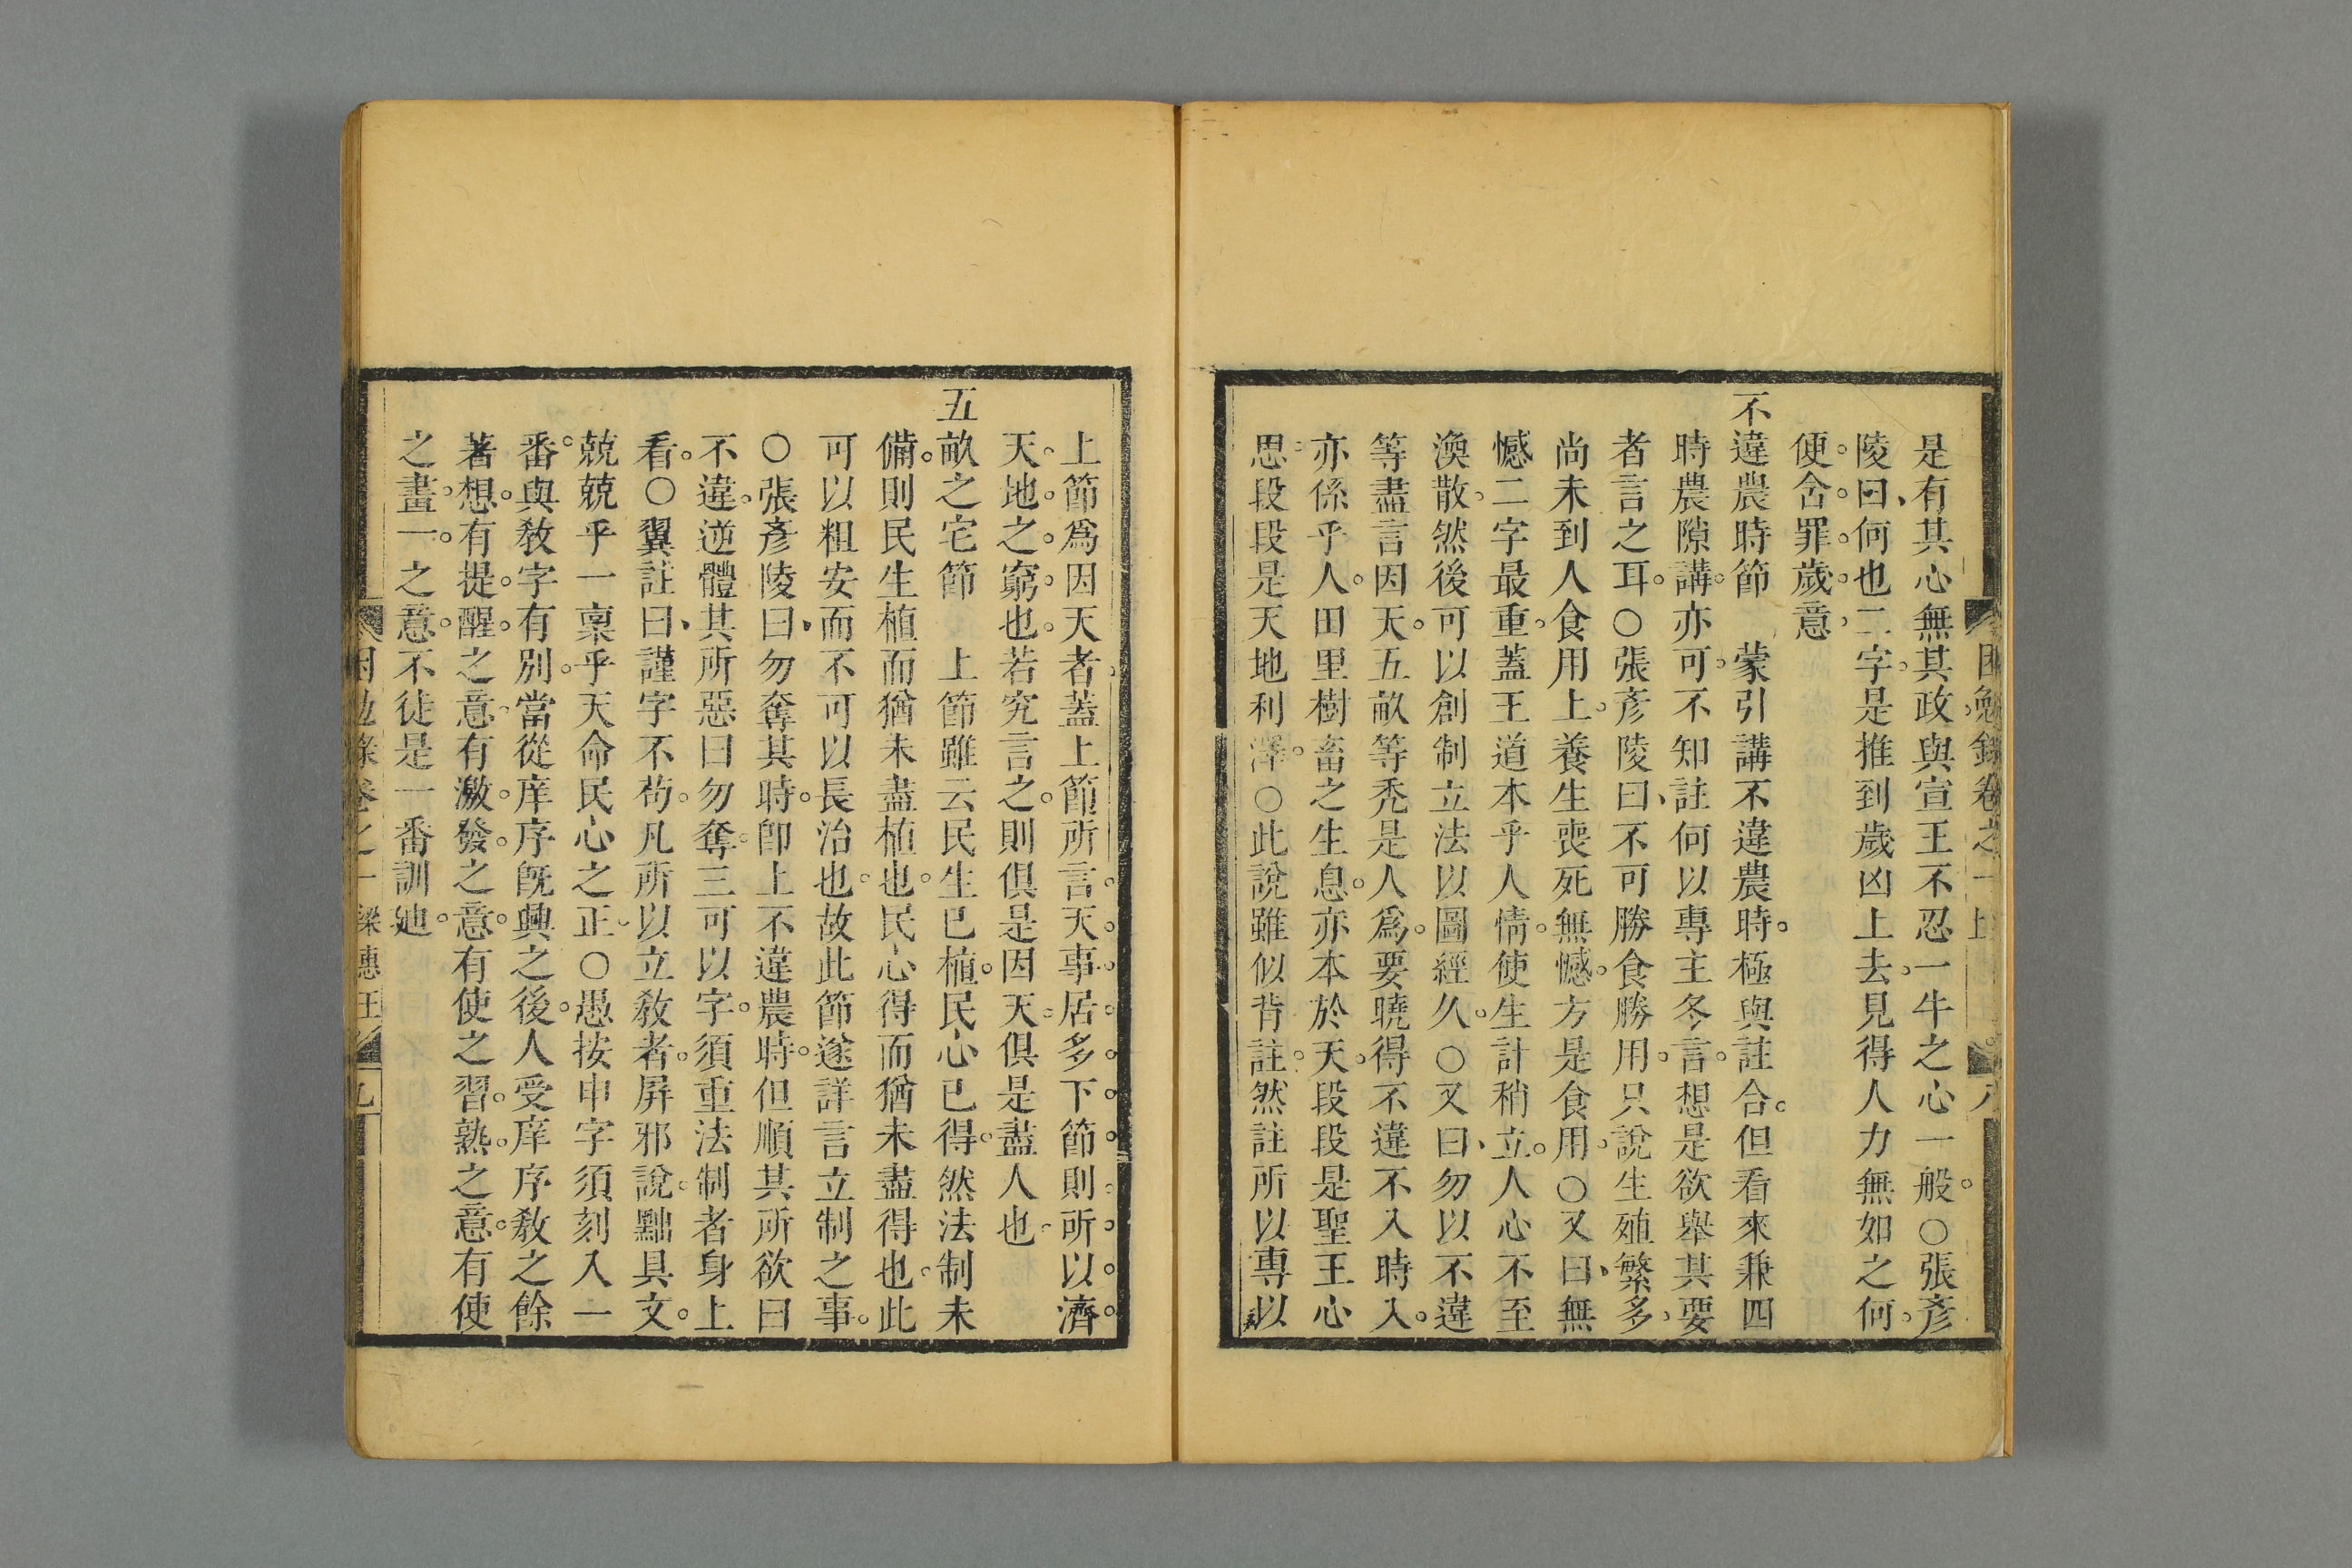 困勉錄卷之一上
八
是有其心無其政與宣王不忍一牛之心一般○張彥
陵曰何也二字是推到歲凶上去見得人力無如之何
便含罪歲意
不違農時節　蒙引講不違農時極與註合但看來兼四
時農隙講亦可不知註何以專主冬言想是欲舉其要
者言之耳○張彥陵曰不可勝食勝用只說生殖繁多
尚未到人食用上養生喪死無憾方是食用○又曰無
憾二字最重蓋王道本乎人情使生計稍立人心不至
渙散然後可以創制立法以圖經久○又曰勿以不違
等盡言因天五畝等禿是人爲要曉得不違不入時入
亦係乎人田里樹畜之生息亦本於天段段是聖王心
思段段是天地利澤○此說雖似背註然註所以專以
上節爲因天者蓋上節所言天事居多下節則所以濟
天地之窮也若究言之則俱是因天俱是盡人也
五畝之宅節　上節雖云民生已植民心已得然法制未
備則民生植而猶未盡植也民心得而猶未盡得也此
可以粗安而不可以長治也故此節遂詳言立制之事
○張彥陵曰勿奪其時卽上不違農時但順其所欲曰
不違逆體其所惡曰勿奪三可以字須重法制者身上
看○翼註曰謹字不苟凡所以立敎者屏邪說黜具文
兢兢乎一稟乎天命民心之正○愚按申字須刻入一
番與敎字有別當從庠序旣興之後人受庠序敎之餘
著想有提醒之意有激發之意有使之習熟之意有使
之畫一之意不徒是一番訓廸
困勉錄卷之一
梁惠王
九